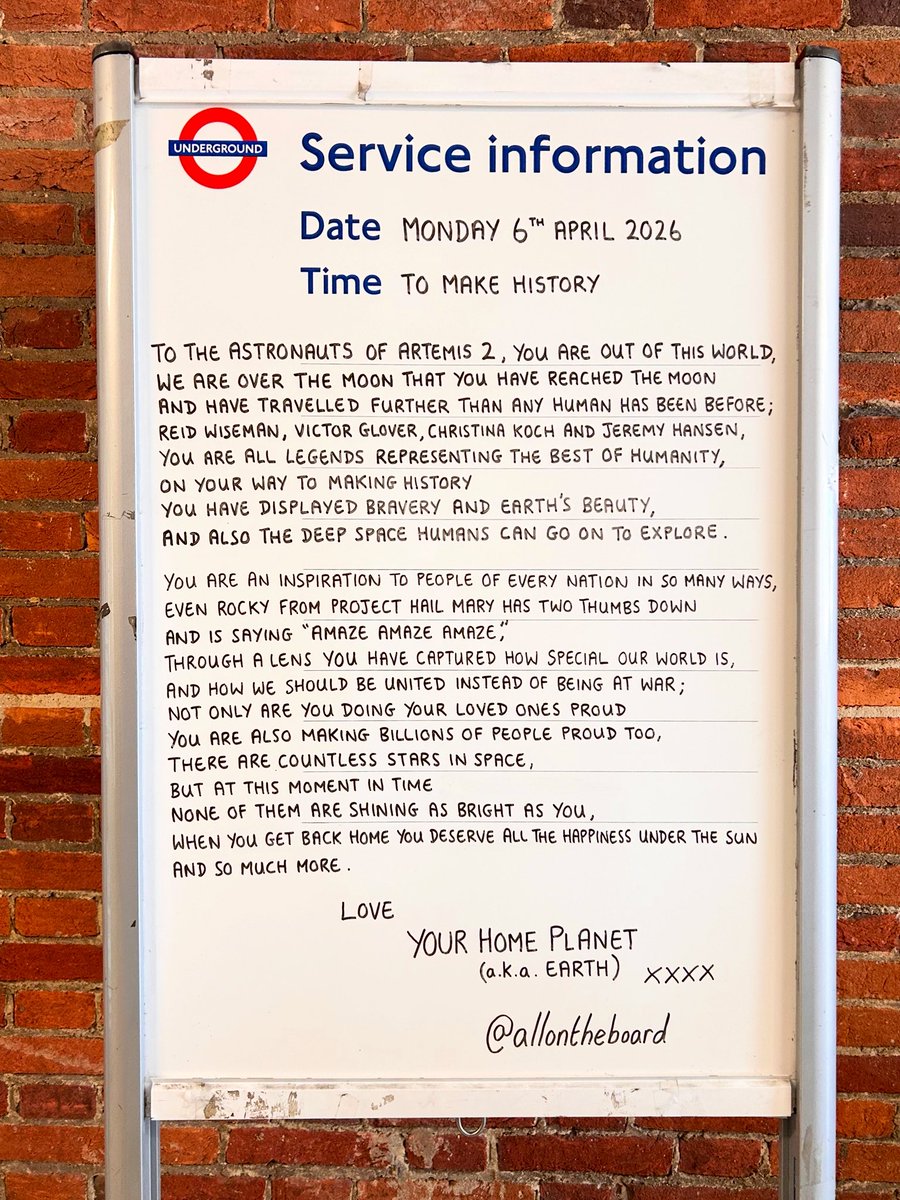 UNDERGROUND
Service information
Date MONDAY 6TH APRIL 2026
Time TO MAKE HISTORY
TO THE ASTRONAUTS OF ARTEMIS 2, YOU ARE OUT OF THIS WORLD,
WE ARE OVER THE MOON THAT YOU HAVE REACHED THE MOON
AND HAVE TRAVELLED FURTHER THAN ANY HUMAN HAS BEEN BEFORE;
REID WISEMAN, VICTOR GLOVER, CHRISTINA KOCH AND JEREMY HANSEN,
YOU ARE ALL LEGENDS REPRESENTING THE BEST OF HUMANITY,
ON YOUR WAY TO MAKING HISTORY
YOU HAVE DISPLAYED BRAVERY AND EARTH'S BEAUTY,
AND ALSO THE DEEP SPACE HUMANS CAN GO ON TO EXPLORE.
YOU ARE AN INSPIRATION TO PEOPLE OF EVERY NATION IN SO MANY WAYS,
EVEN ROCKY FROM PROJECT HAIL MARY HAS TWO THUMBS DOWN
AND IS SAYING "AMAZE AMAZE AMAZE,"
THROUGH A LENS YOU HAVE CAPTURED HOW SPECIAL OUR WORLD IS,
AND HOW WE SHOULD BE UNITED INSTEAD OF BEING AT WAR;
NOT ONLY ARE YOU DOING YOUR LOVED ONES PROUD
YOU ARE ALSO MAKING BILLIONS OF PEOPLE PROUD TOO,
THERE ARE COUNTLESS STARS IN SPACE,
BUT AT THIS MOMENT IN TIME
NONE OF THEM ARE SHINING AS BRIGHT AS YOU,
WHEN YOU GET BACK HOME YOU DESERVE ALL THE HAPPINESS UNDER THE SUN
AND SO MUCH MORE.
LOVE
YOUR HOME PLANET
(a.k.a. EARTH) XXXX
@allontheboard